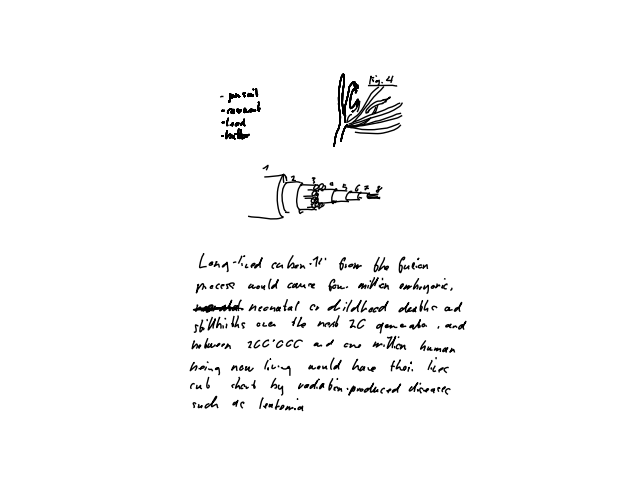 - pursuit
- load
Fig. 4
1 2 3 4 5 6 7 8
Long-lived carbon-14 from the fusion
process would cause four million embryonic,
neonatal or childhood deaths and
stillbirths over the next 20 generatio, and
between 200'000 and one million human
being now living would have their lives
cut short by radiation-produced diseases
such as leukemia